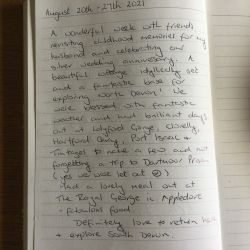 August 20th - 27th 2021
A wonderful week with friends
revisiting childhood memories for my
husband and celebrating our
silver wedding anniversary. A
beautiful cottage, idyllically set
and a fantastic base for
exploring North Devon! We
were blessed with fantastic
weather and had brilliant days
out at Lydford Gorge, Clovelly,
Hartland Quay, Port Isaac &
Tintagel to name a few and not
forgetting a trip to Dartmoor Prison
(yes we were let out ☺)
Had a lovely meal out at
The Royal George in Appledore
- fabulous food.
Definitely love to return here
& explore South Devon.